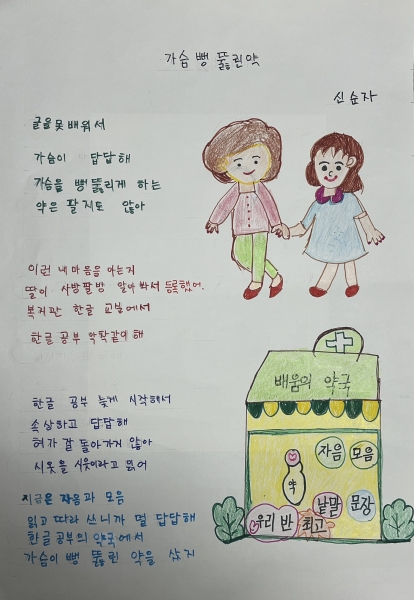 가슴 뻥 뚫린 약
신순자
글을 못 배워서
가슴이 답답해
가슴을 뻥 뚫리게 하는
약은 팔지도 않아
이런 내 마음을 아는지
딸이 사방팔방 알아봐서 등록했어.
복지관 한글 교실에서
한글 공부 악착같이 해
한글 공부 늦게 시작해서
속상하고 답답해
혀가 잘 돌아가지 않아
시옷을 시읏이라고 읽어
지금은 자음과 모음
읽고 따라 쓰니까 덜 답답해
한글 공부의 약국에서
가슴이 뻥 뚫린 약을 샀지
배움의 약국
자음
모음
약
낱말
문장
우리 반
최고